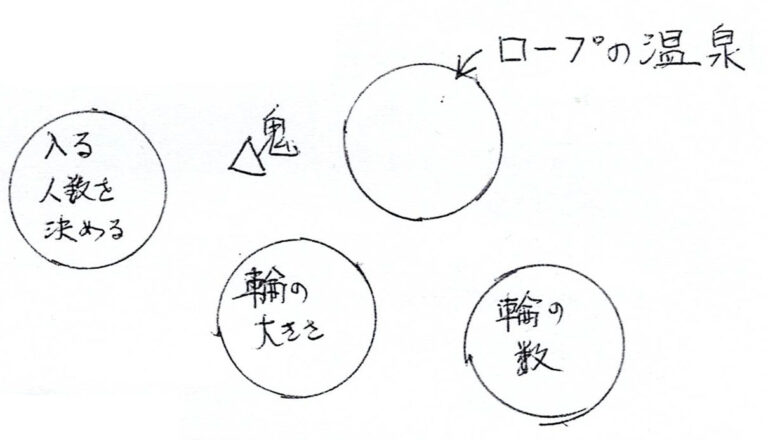 ロープの温泉
鬼
入る
人数を
決める
輪の
大きさ
輪の
数